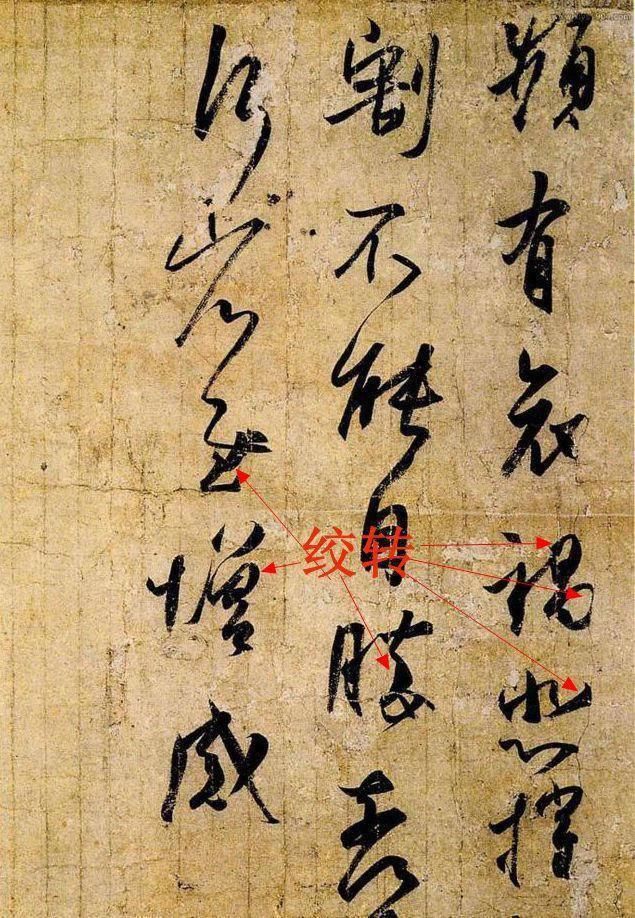 頻有哀禍悲摧
割不能自勝奈
何省慰增感
绞转